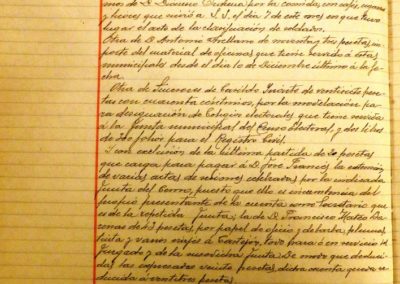 mos de D. Dionisio por la comida, con café, cigarros
y licores que sirvió a S. S. el día 7 de este mes en que tuvo
lugar el acto de la clasificación de soldados.
Otra de D. Antonio de cuarenta y tres pesetas, im
porte del material de oficinas que tiene servido a estas
municipales desde el día 10 de Diciembre último a la fe
cha.
Otra de Sucesores de Castilla de veintisiete pese
tas con cuarenta céntimos, por la modelación pa
ra designación de Colegios electorales que tiene servida
a la Junta municipal del Censo electoral, y dos libros
de 200 folios para el Registro Civil.
Y con exclusión de la última partida de 20 pesetas
que carga para pagar a D. José Francés la extensión
de varias actas de sesiones celebradas por la indicada
Junta del Censo, puesto que ello es incumbencia del
propio presentante de la cuenta como Secretario que
es de la repetida Junta, la de D. Francisco Mateo Da
mas de 43 pesetas, por papel de oficio y de barba, plumas,
tinta y varios viajes a Castejón, todo para o en servicio del
Juzgado y de la mencionada Junta. De modo que deduci
das las expresadas veinte pesetas, dicha cuenta queda re
ducida a veintitres pesetas.